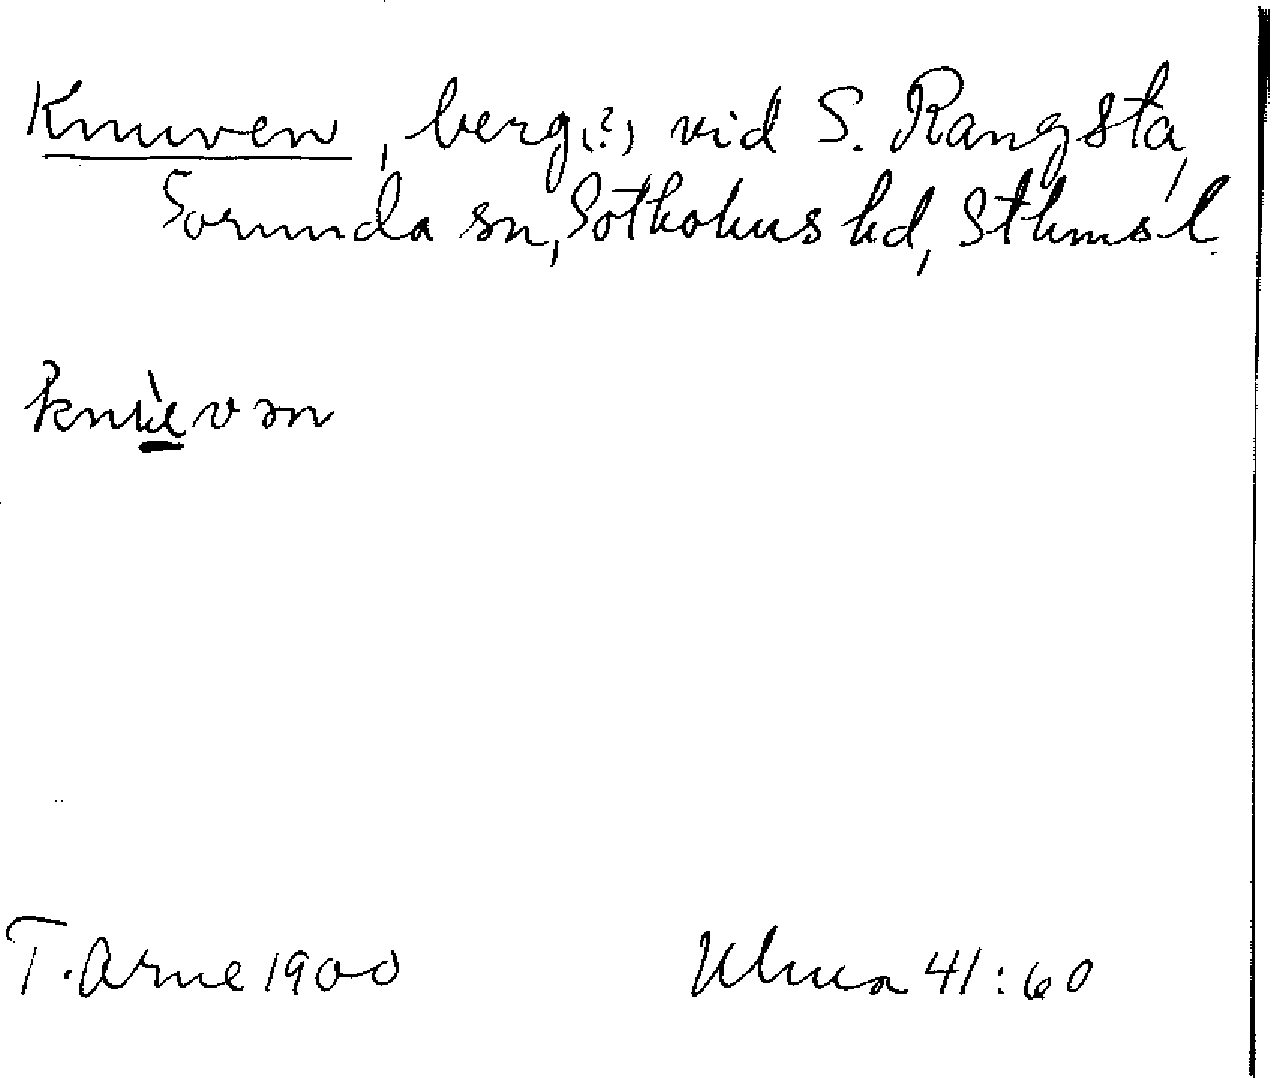 Knuven, berg(?) vid S. Rangsta,
Sorunda sn, Sotholms hd, Sthms l.
T. Arne 1900
Ulma 41:60